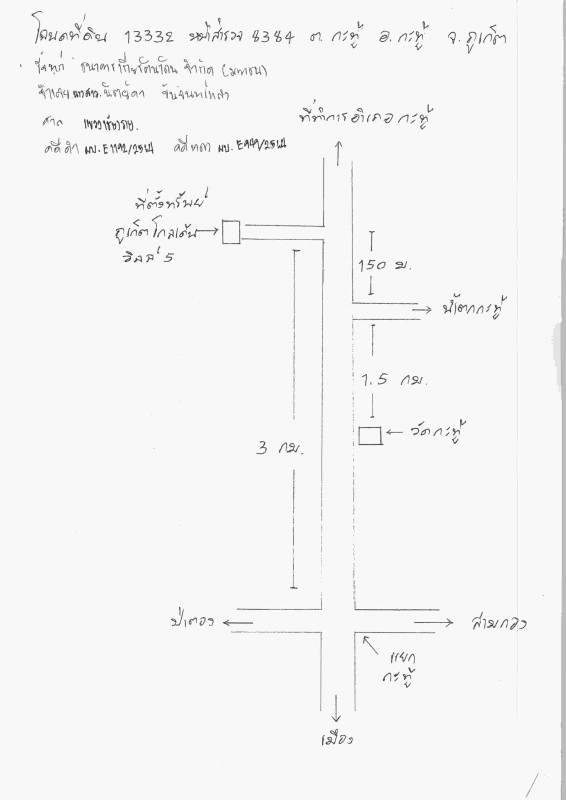 โฉนดที่ดิน 13332 หน้าสำรวจ 8384 ต. กะทู้ อ. กะทู้ จ. ภูเก็ต
โจทก์ ธนาคารเกียรตินาคิน จำกัด (มหาชน)
จำเลย นางสาว
ศาล
คดีดำ ผบ. คดีแดง ผบ.
ที่ทำการอำเภอกะทู้
ที่ตั้งทรัพย์
ภูเก็ตโกลเด้น
วิลล์ 5
150 ม.
น้ำตกกะทู้
1.5 กม.
วัดกะทู้
3 กม.
ป่าตอง
สามกอง
แยก
กะทู้
เมือง